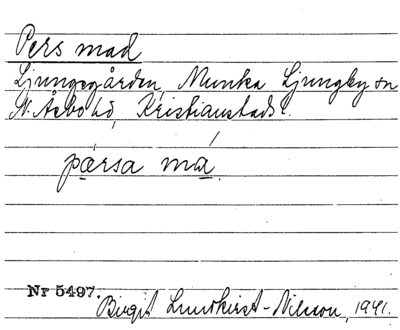 Pers mad
Ljungegården, Munka Ljungby sn
N. Åsbo hd, Kristianstads l.
pǽrsa má.
Nr 5497.
Birgit Lundkvist-Nilsson, 1941.